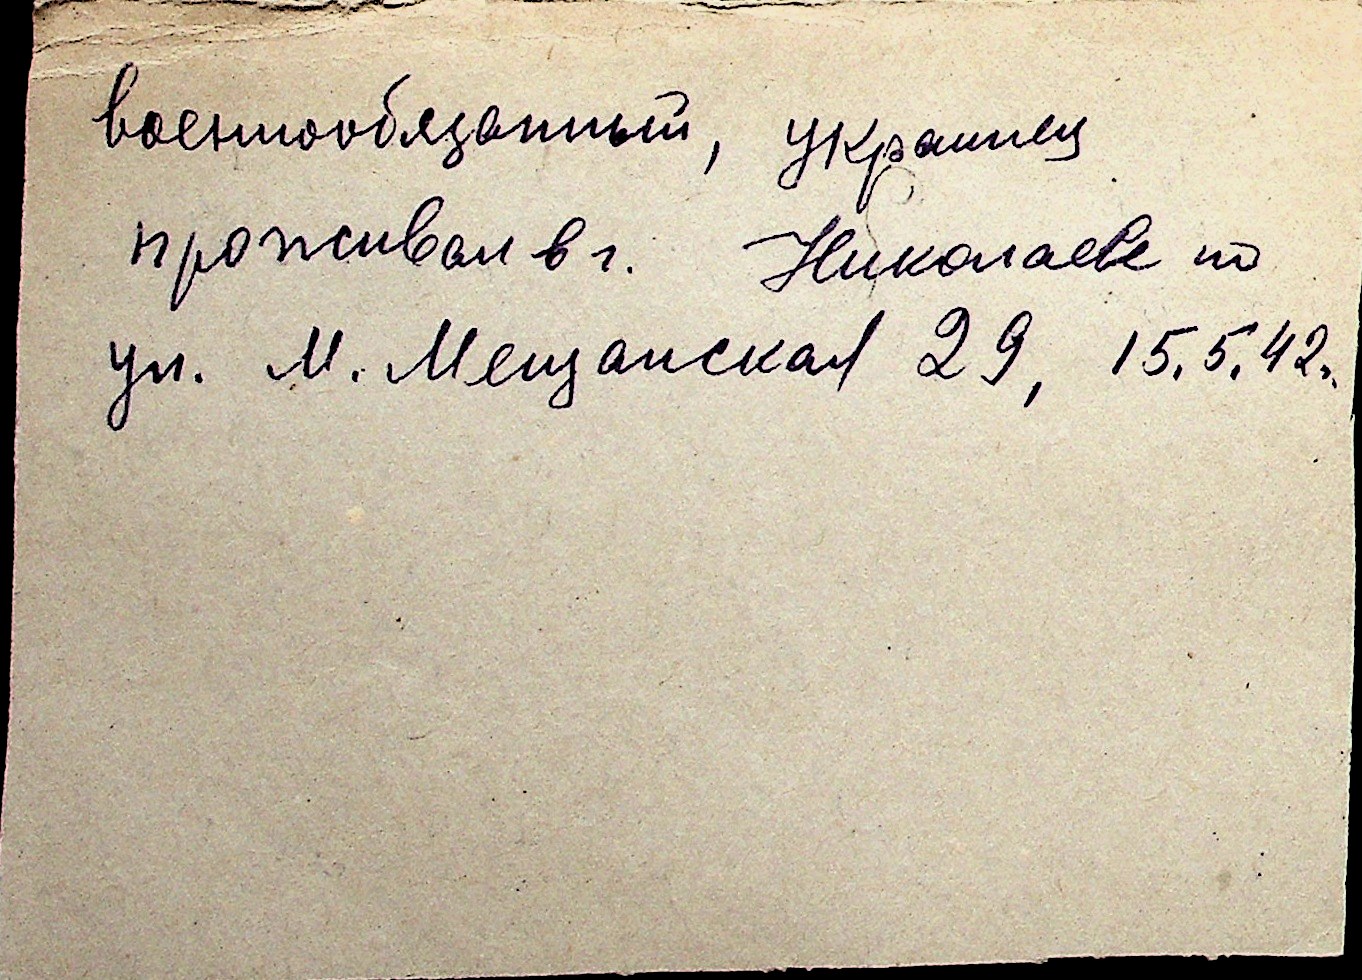 военнообязанный, украинец
проживал в г. Николаеве по
ул. М. Мещанская 29, 15.5.42г.